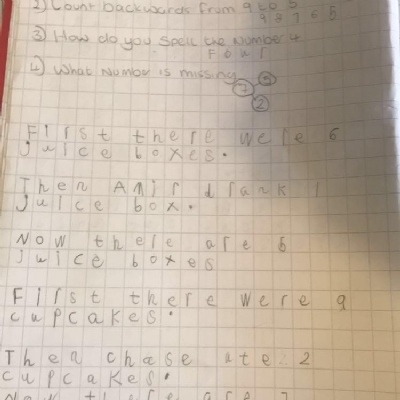 2) Count backwards from 9 to 5
9 8 7 6 5
3) How do you spell the number 4
Four
4) What number is missing
7
2
First there were 6
juice boxes.
Then Amir drank 1
juice box.
Now there are 6
juice boxes
First there were 9
cupcakes.
Then chase ate 2
cupcakes.
Now there are 7